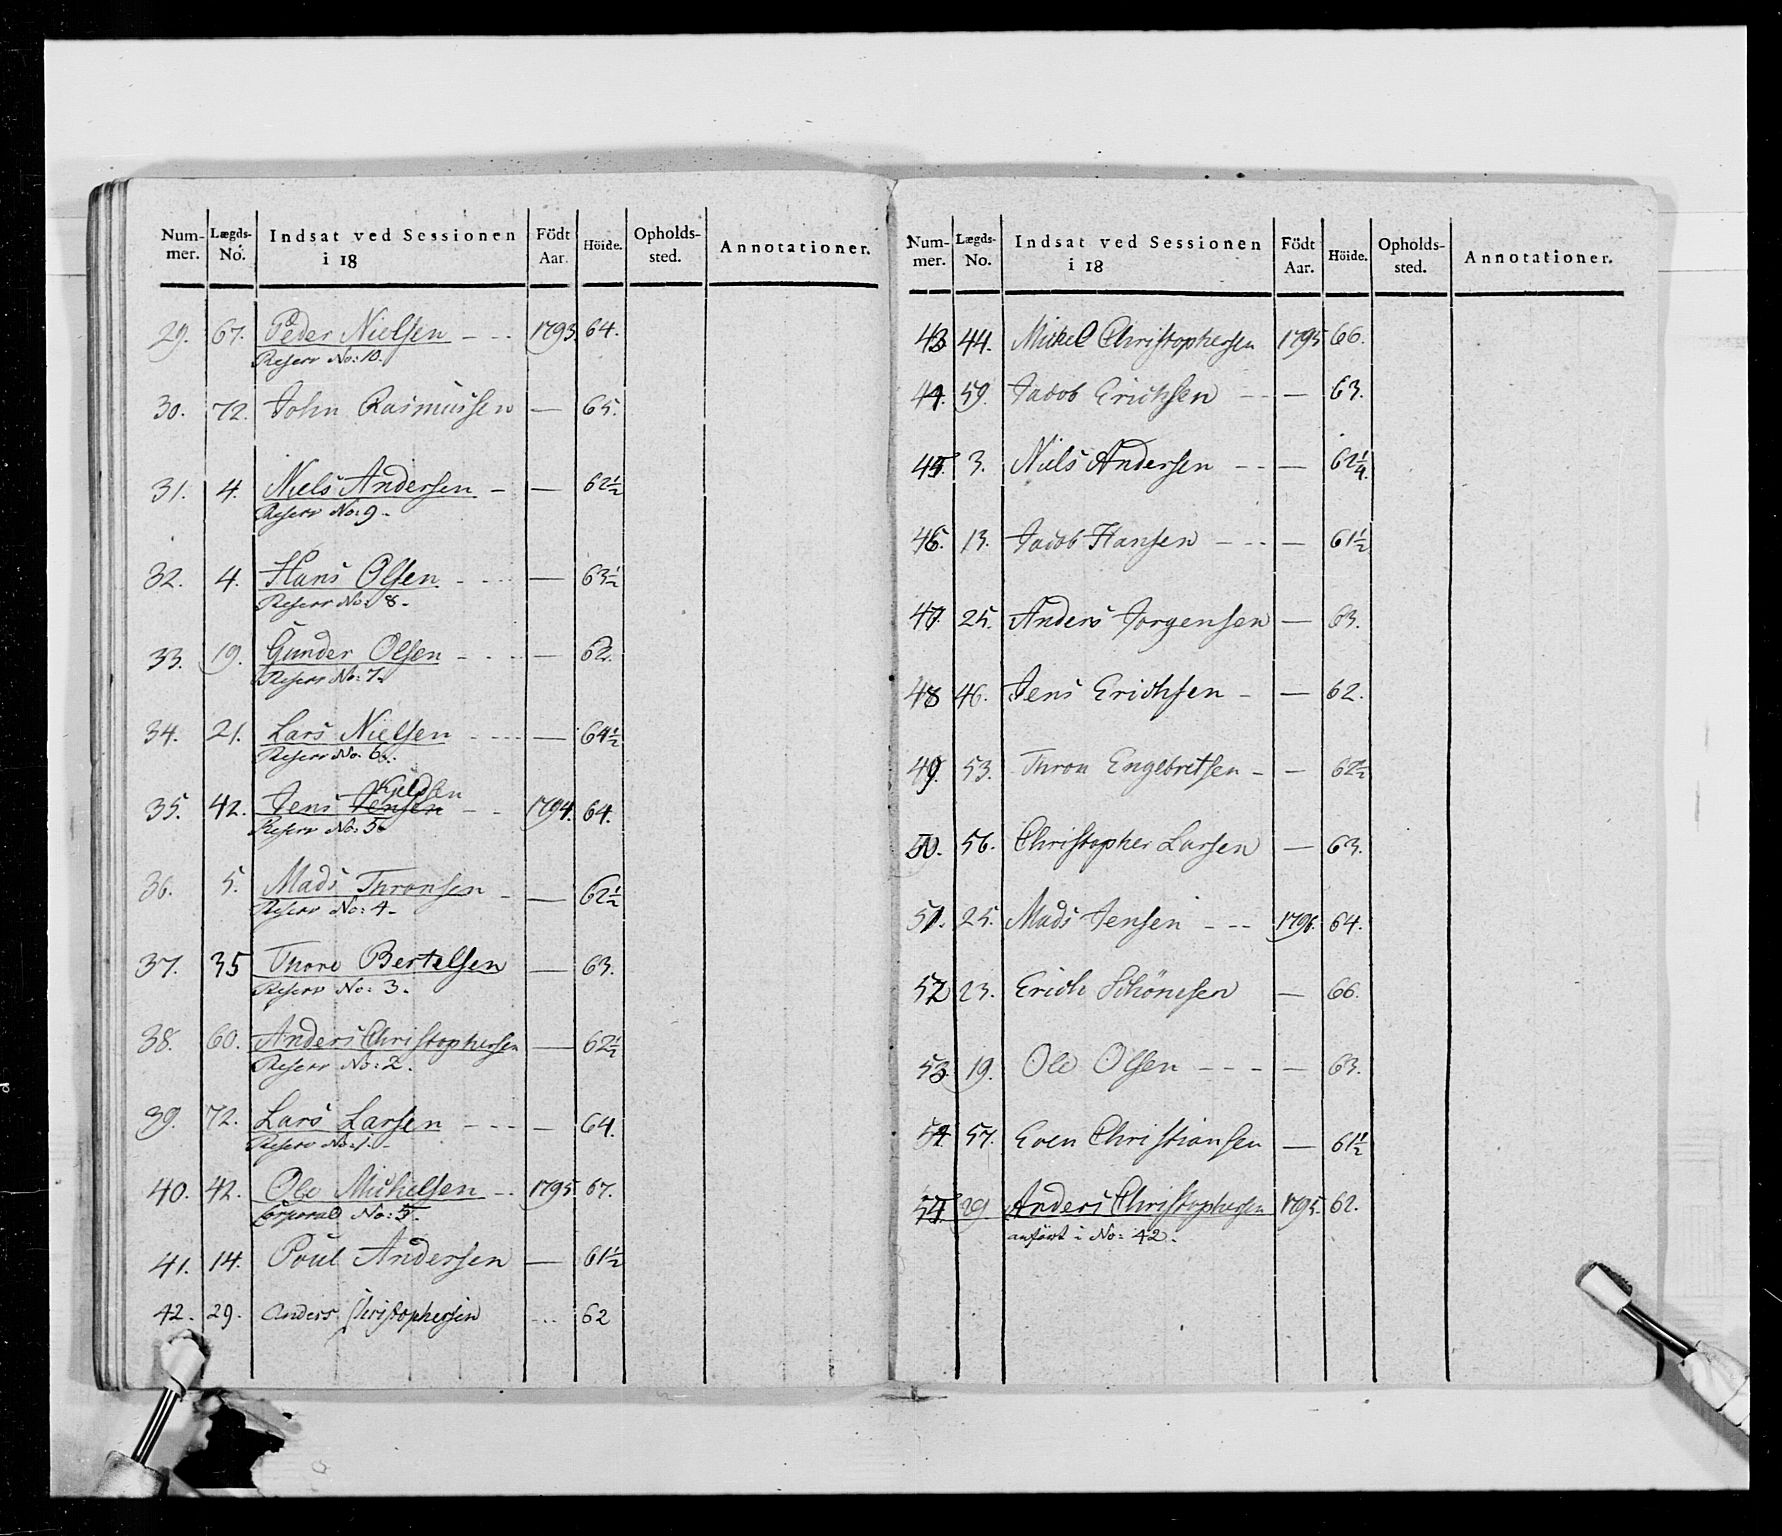 Num-mer. Lægds-No. Indsat ved Sessionen i 18 Födt Aar. Höide. Opholds-sted. Annotationer.
29. 67. Peder Nielsen - - - 1793. 64.
Reserv No: 10.
30. 72. John Rasmussen — 65.
31. 4. Niels Andersen - — 62½
Reserv No: 9.
32. 4. Hans Olsen - - - — 63½
Reserv No: 8.
33. 19. Gunder Olsen - - - — 62.
Reserv No: 7.
34. 21. Lars Nielsen - - - — 64½
Reserv No. 6.
Kieldsen
35. 42. Jens Jensen - - 1794. 64.
Reserv No: 5.
36. 5. Mads Thronsen - — 62½
Reserv No: 4.
37. 35 Thore Bertelsen — 63.
Reserv No: 3.
38. 60. Anders Christophersen — 62½
Reserv No: 2.
39. 72. Lars Larsen - - - — 64.
Reserv No: 1.
40. 42. Ole Michelsen - - 1795 67.
Corporal No: 5.
41. 14. Poul Andersen — 61½
42. 29. Anders Christophersen ... 62
Num-mer. Lægds-No. Indsat ved Sessionen i 18 Födt Aar. Höide. Opholds-sted. Annotationer.
43 44. Mickel Christophersen 1795 66.
44. 59. Jacob Erichsen - - — 63.
45. 3. Niels Andersen - - — 62¼.
46. 13. Jacob Hansen - - - — 61½
47. 25. Anders Jorgensen — 63.
48 46. Jens Erichsen - — 62.
49. 53. Thron Engebretsen - — 62½
50. 56. Christopher Larsen — 63.
51. 25. Mads Jensen - - - 1796. 64.
52 23. Erich Schönesen — 66.
53. 19. Ole Olsen - - - — 63.
54. 57. Even Christiansen — 61½
54. 29 Anders Christophersen 1795. 62.
anfört i No: 42.